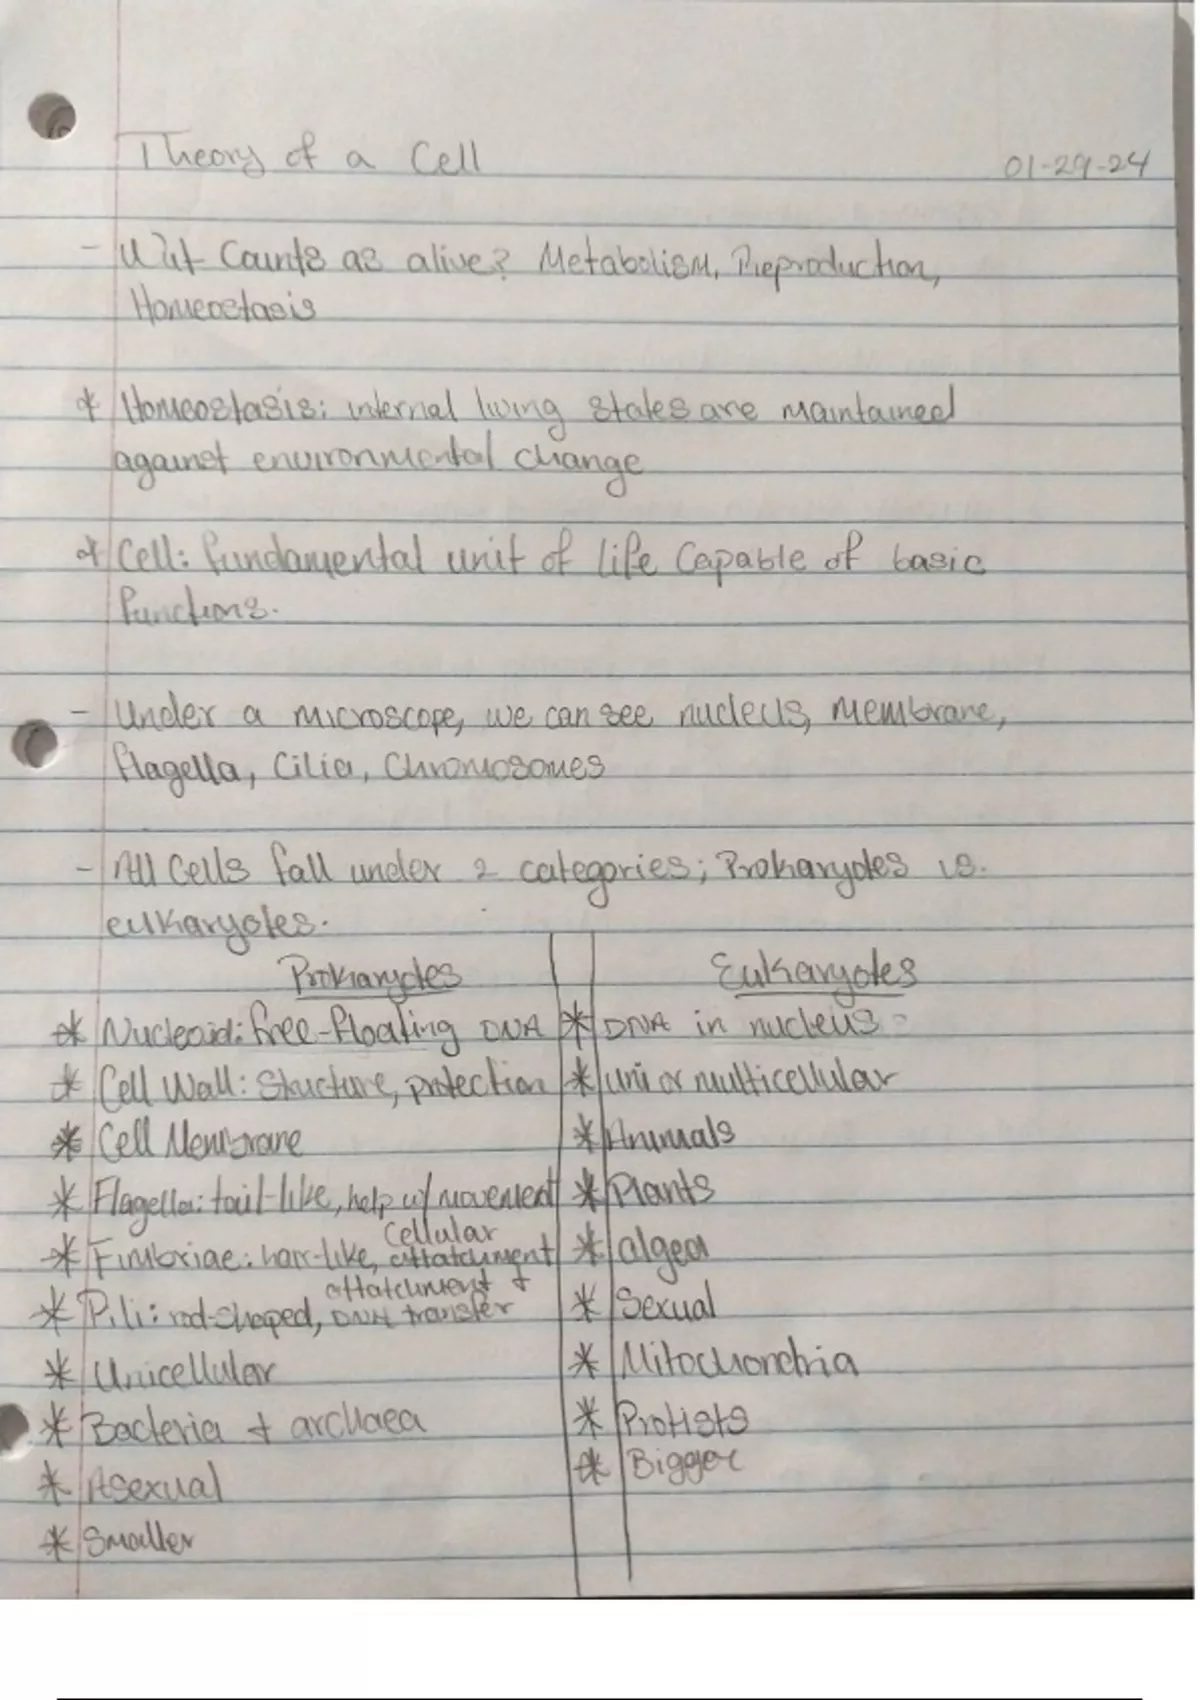 Theory of a Cell 01-29-24
- What Counts as alive? Metabolism, Reproduction,
Homeostasis
* Homeostasis: internal living states are maintained
against environmental change
* Cell: fundamental unit of life capable of basic
functions.
- Under a microscope, we can see nucleus, membrane,
flagella, cilia, chromosomes
- All cells fall under 2 categories; Prokaryotes vs.
eukaryotes.
Prokaryotes
* Nucleoid: free-floating DNA
* Cell Wall: Structure, protection
* Cell Membrane
* Flagella: tail-like, help w/ movement
* Fimbriae: hair-like, cellular attatchment
* Pili: rod-shaped, attatchment + DNA transfer
* Unicellular
* Bacteria + archaea
* Asexual
* Smaller
Eukaryotes
* DNA in nucleus
* uni or multicellular
* Animals
* Plants
* algea
* Sexual
* Mitochondria
* Protists
* Bigger